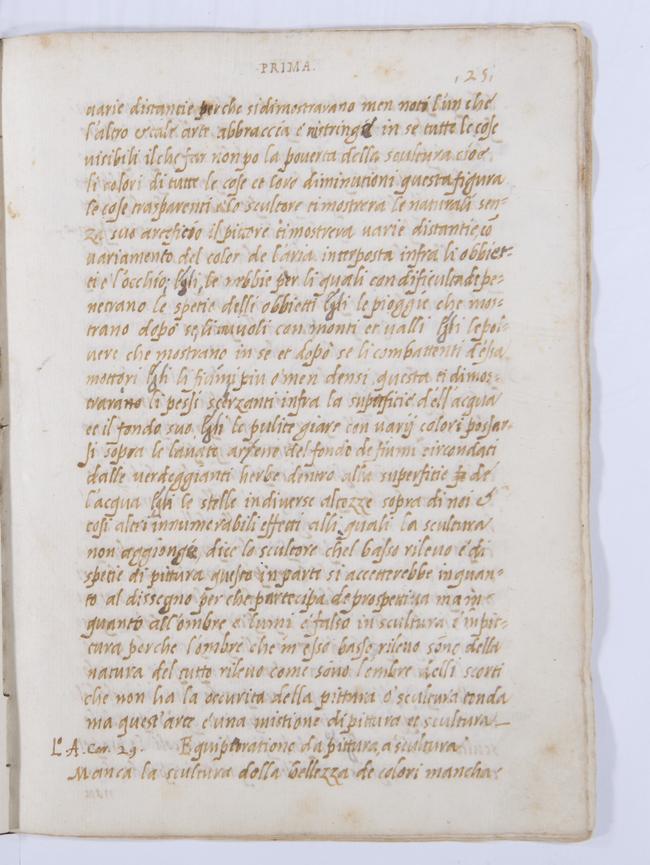 PRIMA.
,25,
varie distantie perche si dimostravano men noti l'un che
l'altro et tale arte abbraccia e ristringie in se tutte le cose
visibili il che far non po la poverta della scultura cioe
li colori di tutte le cose et loro diminutioni questa figura
le cose trasparenti e lo scultore ti mostrera le naturali sen-
za suo arteficio il pittore ti mostrera varie distantie co
variamento del color de l'aria interposta infra li obbiet-
ti e l'occhio, egli, le nebbie per li quali con dificulta de pe-
netrano le spetie delli obbietti egli le pioggie che mos-
trano dopo se li nuvoli con monti et valli egli le pol-
vere che mostrano in se et dopo se li combattenti d'essa
mottori egli li fiumi piu o men densi, questa ti dimos-
trarano li pessi scerzanti infra la superficie dell'acqua
et il fondo suo egli le pulite giare con varij colori possar-
si sopra le lavate arene del fondo de fiumi circondati
dalle verdeggianti herbe dentro alla superficie de
l'acqua egli le stelle in diverse altezze sopra di noi e
cosi altri innumerabili effetti alli quali la scultura
non aggiongie, dice lo scultore chel basso rilevo e di
spetie di pittura questo in parte si accetterebbe in quan-
to al dissegno per che partecipa de prospettiva ma in
quanto all'ombre e lumi e falso in scultura e in pit-
tura perche l'ombre che in esso basso rilevo sono della
natura del tutto rilevo come sono l'ombre delli scorti
che non ha la occurita della pittura o scultura tonda
ma quest'arte e una mistione di pittura et scultura
L.º A. Car. 29. Equiperatione da pittura a scultura
Manca la scultura della bellezza de colori mancha